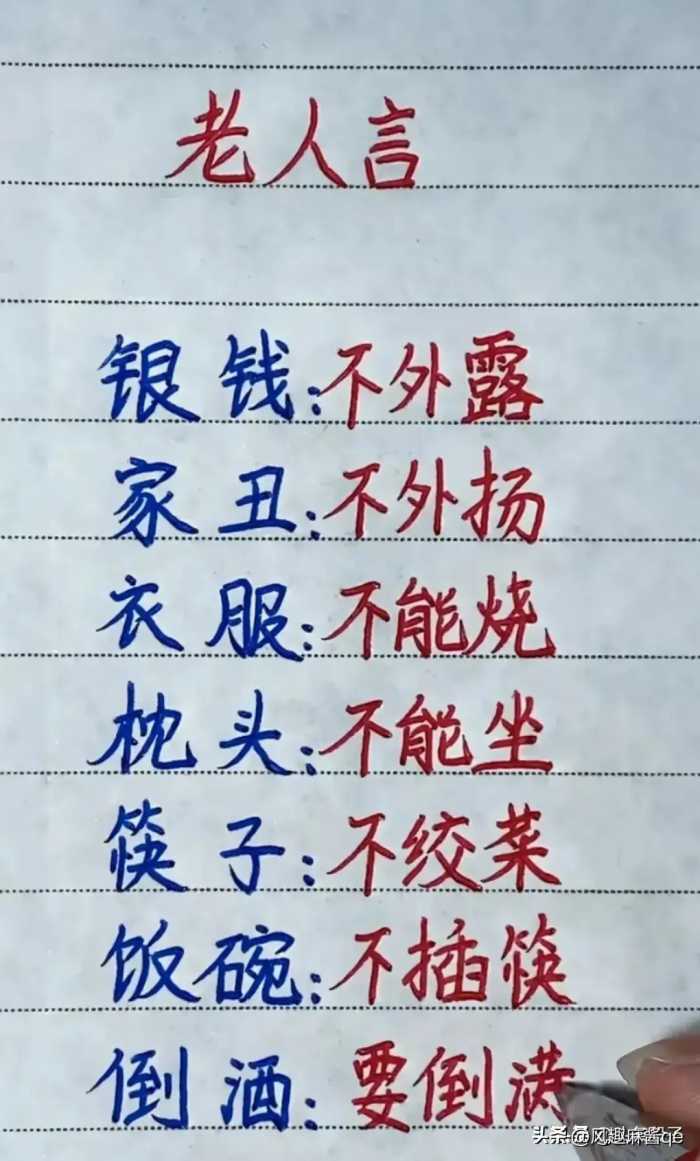 老人言
银钱:不外露
家丑:不外扬
衣服:不能烧
枕头:不能坐
筷子:不绞菜
饭碗:不插筷
倒酒:要倒满
头条 @风趣麻酱qe